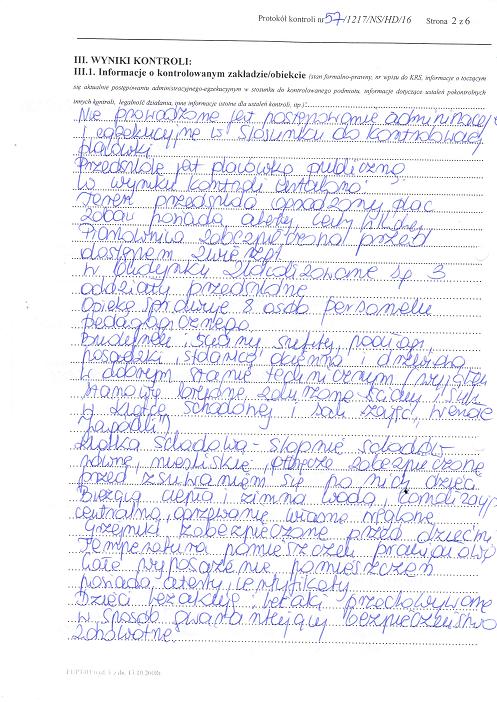 Protokół kontroli nr 57/1217/NS/HD/16 Strona 2 z 6
III. WYNIKI KONTROLI:
III.1. Informacje o kontrolowanym zakładzie/obiekcie (stan formalno-prawny, nr wpisu do KRS, informacje o toczącym
się aktualnie postępowaniu administracyjnego-egzekucyjnym w stosunku do kontrolowanego podmiotu, informacje dotyczące ustaleń pokontrolnych
innych kontroli, legalność działania, inne informacje istotne dla ustaleń kontroli, itp.)
Nie prowadzone jest postępowanie
i egzekucyjne w stosunku do kontrolowanej
placówki
Przedszkole jest placówką publiczną
W wyniku kontroli ustalono:
Teren przedszkola ogrodzony, plac
zabaw posiada atesty
Piaskownica zabezpieczona przed
dostępem zwierząt.
W budynku zlokalizowane są 3
oddziały przedszkolne
Opiekę sprawuje 8 osób personelu
pedagogicznego.
Budynek, ściany, sufity, podłogi,
posadzki, stolarka okienna i drzwiowa
w dobrym stanie technicznym
stanowią
w klatce schodowej i sali zajęć,
Klatka schodowa - stopnie schodów
równe, nieśliskie, poręcze zabezpieczone
przed zsuwaniem się po nich dzieci.
Bieżąca ciepła i zimna woda,
centralna, ogrzewanie własne
Grzejniki zabezpieczone przed dziećmi
Temperatura pomieszczeń prawidłowa
Całe wyposażenie pomieszczeń
posiada atesty, certyfikaty
przechowywane
w sposób gwarantujący bezpieczeństwo
zdrowotne.